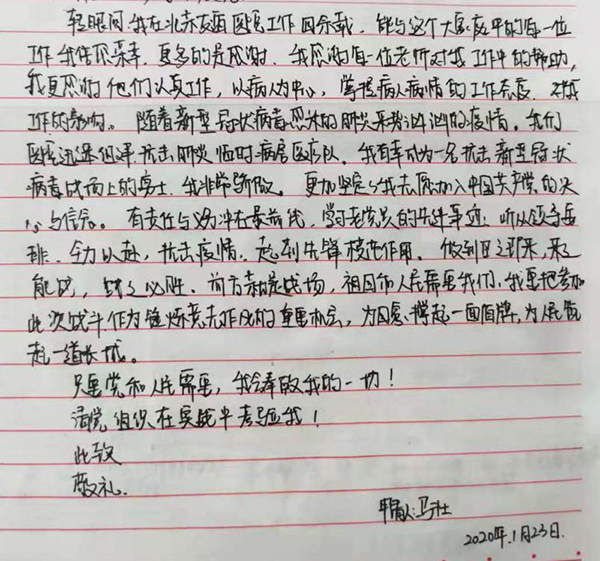 转眼间我在北京友谊医院工作四余载，能与这个大家庭中的每一位
工作我倍感荣幸，更多的是感谢，我感谢每一位老师对我工作中的帮助，
我更感谢他们认真工作，以病人为中心，掌握病人病情的工作态度，对我
工作的影响。随着新型冠状病毒感染的肺炎来势汹汹的疫情。我们
医院迅速组建抗击肺炎临时病房医疗队，我有幸成为一名抗击新型冠状
病毒战场上的勇士，我非常骄傲。更加坚定了我志愿加入中国共产党的决
心与信念。有责任与义务冲在最前线，学习老党员的先进事迹，听从领导安
排，全力以赴，抗击疫情，起到先锋模范作用。做到召之即来，来之
能战，战之必胜。前方就是战场，祖国和人民需要我们，我要把参加
此次战斗作为锤炼意志作风的重要机会，为同志撑起一面盾牌，为人民筑
起一道长城。
只要党和人民需要，我会奉献我的一切！
请党组织在实践中考验我！
此致
敬礼
申请人：马壮
2020年1月23日